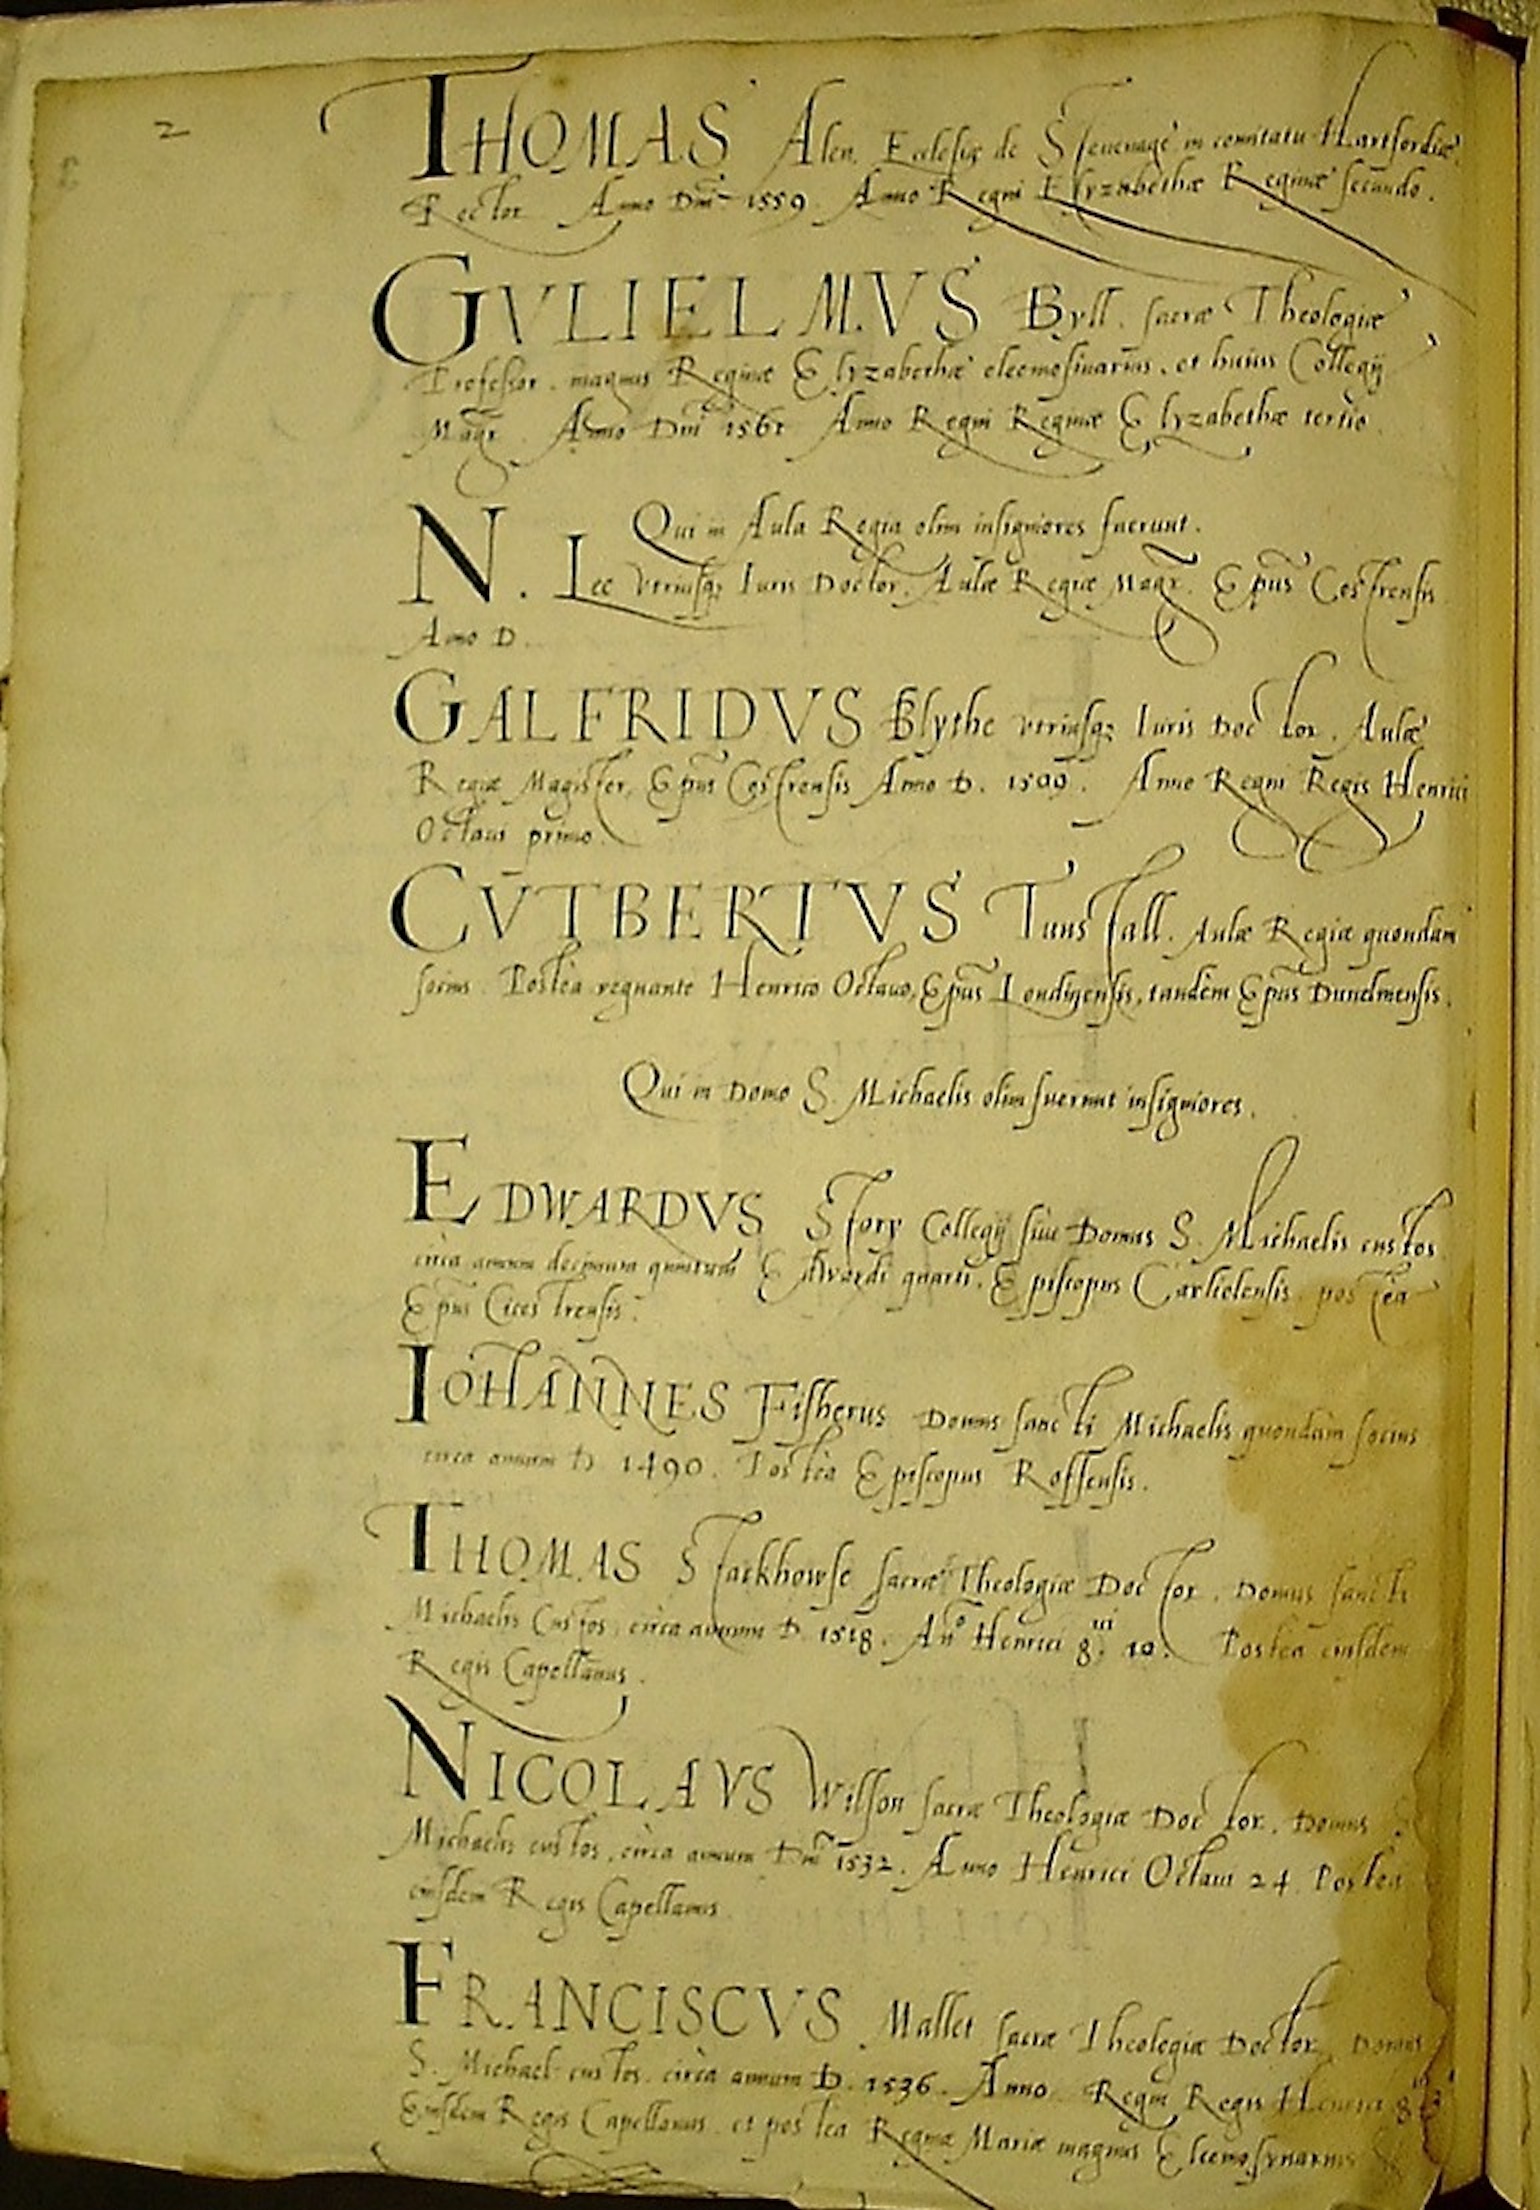 2
THOMAS Alen. Ecclesiæ de Steuenage in comitatu Hartfordiæ.
Rector Anno Dni 1559. Anno Regni Elyzabethæ Reginæ secundo.
GVLIELMVS Byll. sacræ Theologiæ
Professor. magnus Reginæ Elyzabethæ eleemosinarius, et huius Collegij
Magr. Anno Dni 1561 Anno Regni Reginæ Elyzabethæ tertio.
Qui in Aula Regia olim insigniores fuerunt.
N. Lee vtriusq; Iuris Doctor. Aulæ Regiæ Magr. Epus Cestrensis
Anno D.
GALFRIDVS Blythe vtriusq; Iuris Doctor. Aulæ
Regiæ Magister, Epus Cestrensis Anno D. 1509. Anno Regni Regis Henrici
Octaui primo.
CVTBERTVS Tunstall. Aulæ Regiæ quondam
socius. Postea regnante Henrico Octauo, Epus Londinensis, tandem Epus Dunelmensis.
Qui in Domo S. Michaelis olim fuerunt insigniores.
EDWARDVS Story Collegij siue Domus S. Michaelis custos
circa annum decimum quintum Edwardi quarti. Episcopus Carliolensis. postea
Epus Cicestrensis.
IOHANNES Fisherus Domus sancti Michaelis quondam socius
circa annum D. 1490. Postea Episcopus Roffensis.
THOMAS Stackhowse sacræ Theologiæ Doctor. Domus sancti
Michaelis Custos. circa annum D. 1518. Ano Henrici 8ui 10. Postea eiusdem
Regis Capellanus.
NICOLAVS Wilson sacræ Theologiæ Doctor. Domus S
Michaelis custos, circa annum Dni 1532. Anno Henrici Octaui 24 Postea
eiusdem Regis Capellanus
FRANCISCVS Mallet sacræ Theologiæ Doctor Domus
S. Michael custos. circa annum D. 1536. Anno Regni Regis Henrici 8
Eiusdem Regis Capellanus. et postea Reginæ Mariæ magnus Eleemosynarius